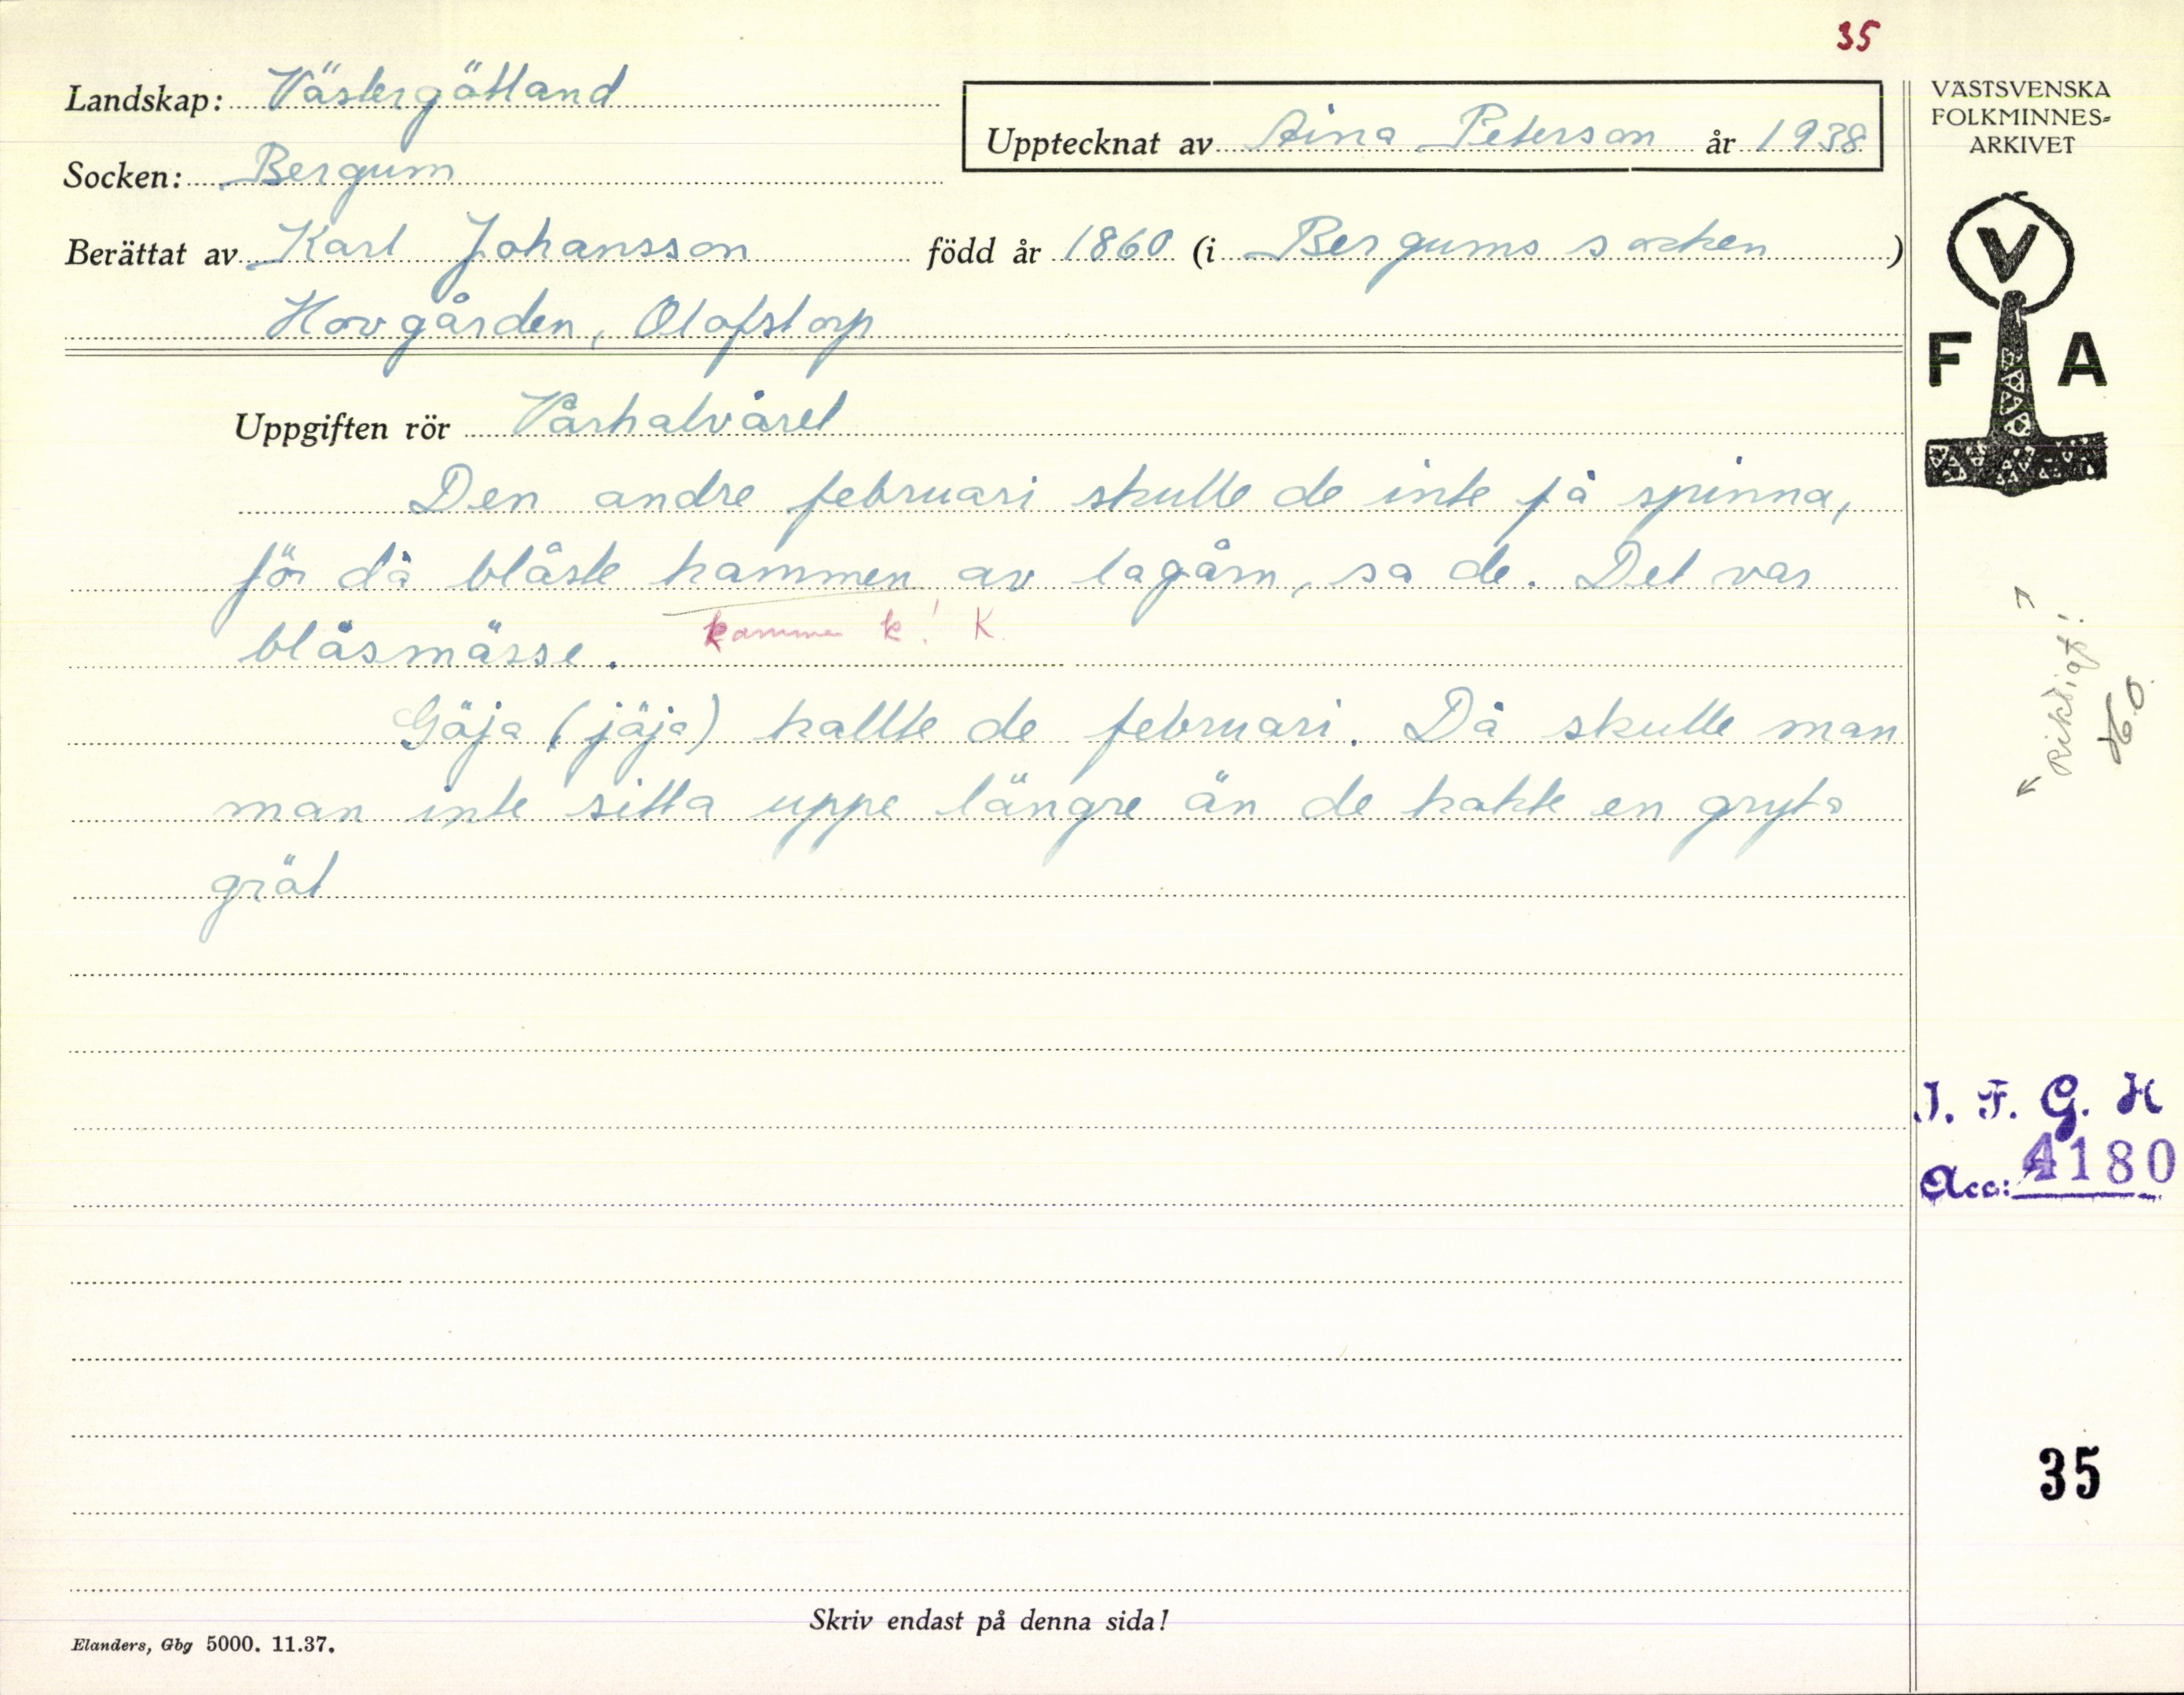 35
Landskap: Västergötland
Upptecknat av Aina Peterson år 1938
Socken: Bergum
Berättat av Karl Johansson född år 1860 (i Bergums socken )
Hovgården, Olofstorp
VÄSTSVENSKA
FOLKMINNES=
ARKIVET
V
F A
Uppgiften rör Vårhalvåret
Den andre februari skulle de inte få spinna,
för då blåste kammen av lagårn, sa de. Det var
kamme k! K.
blåsmässe.
Göja (jöja) kallte de februari. Då skulle man
man inte sitta uppe längre än de kokte en gryta
gröt
Riktigt!
I. F. G. H
Acc: 4180
35
Skriv endast på denna sida!
Elanders, Gbg 5000. 11.37.